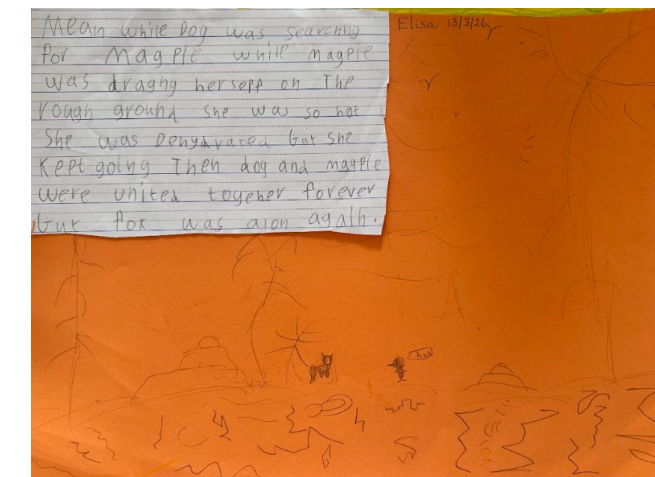 Mean while Dog was searching
for Magpie while magpie
was draging herself on The
rough ground she was so hot
She was Dehydrated but she
Kept going Then dog and magpie
were united togeher forever
but fox was alon again.
Elisa 13/3/26